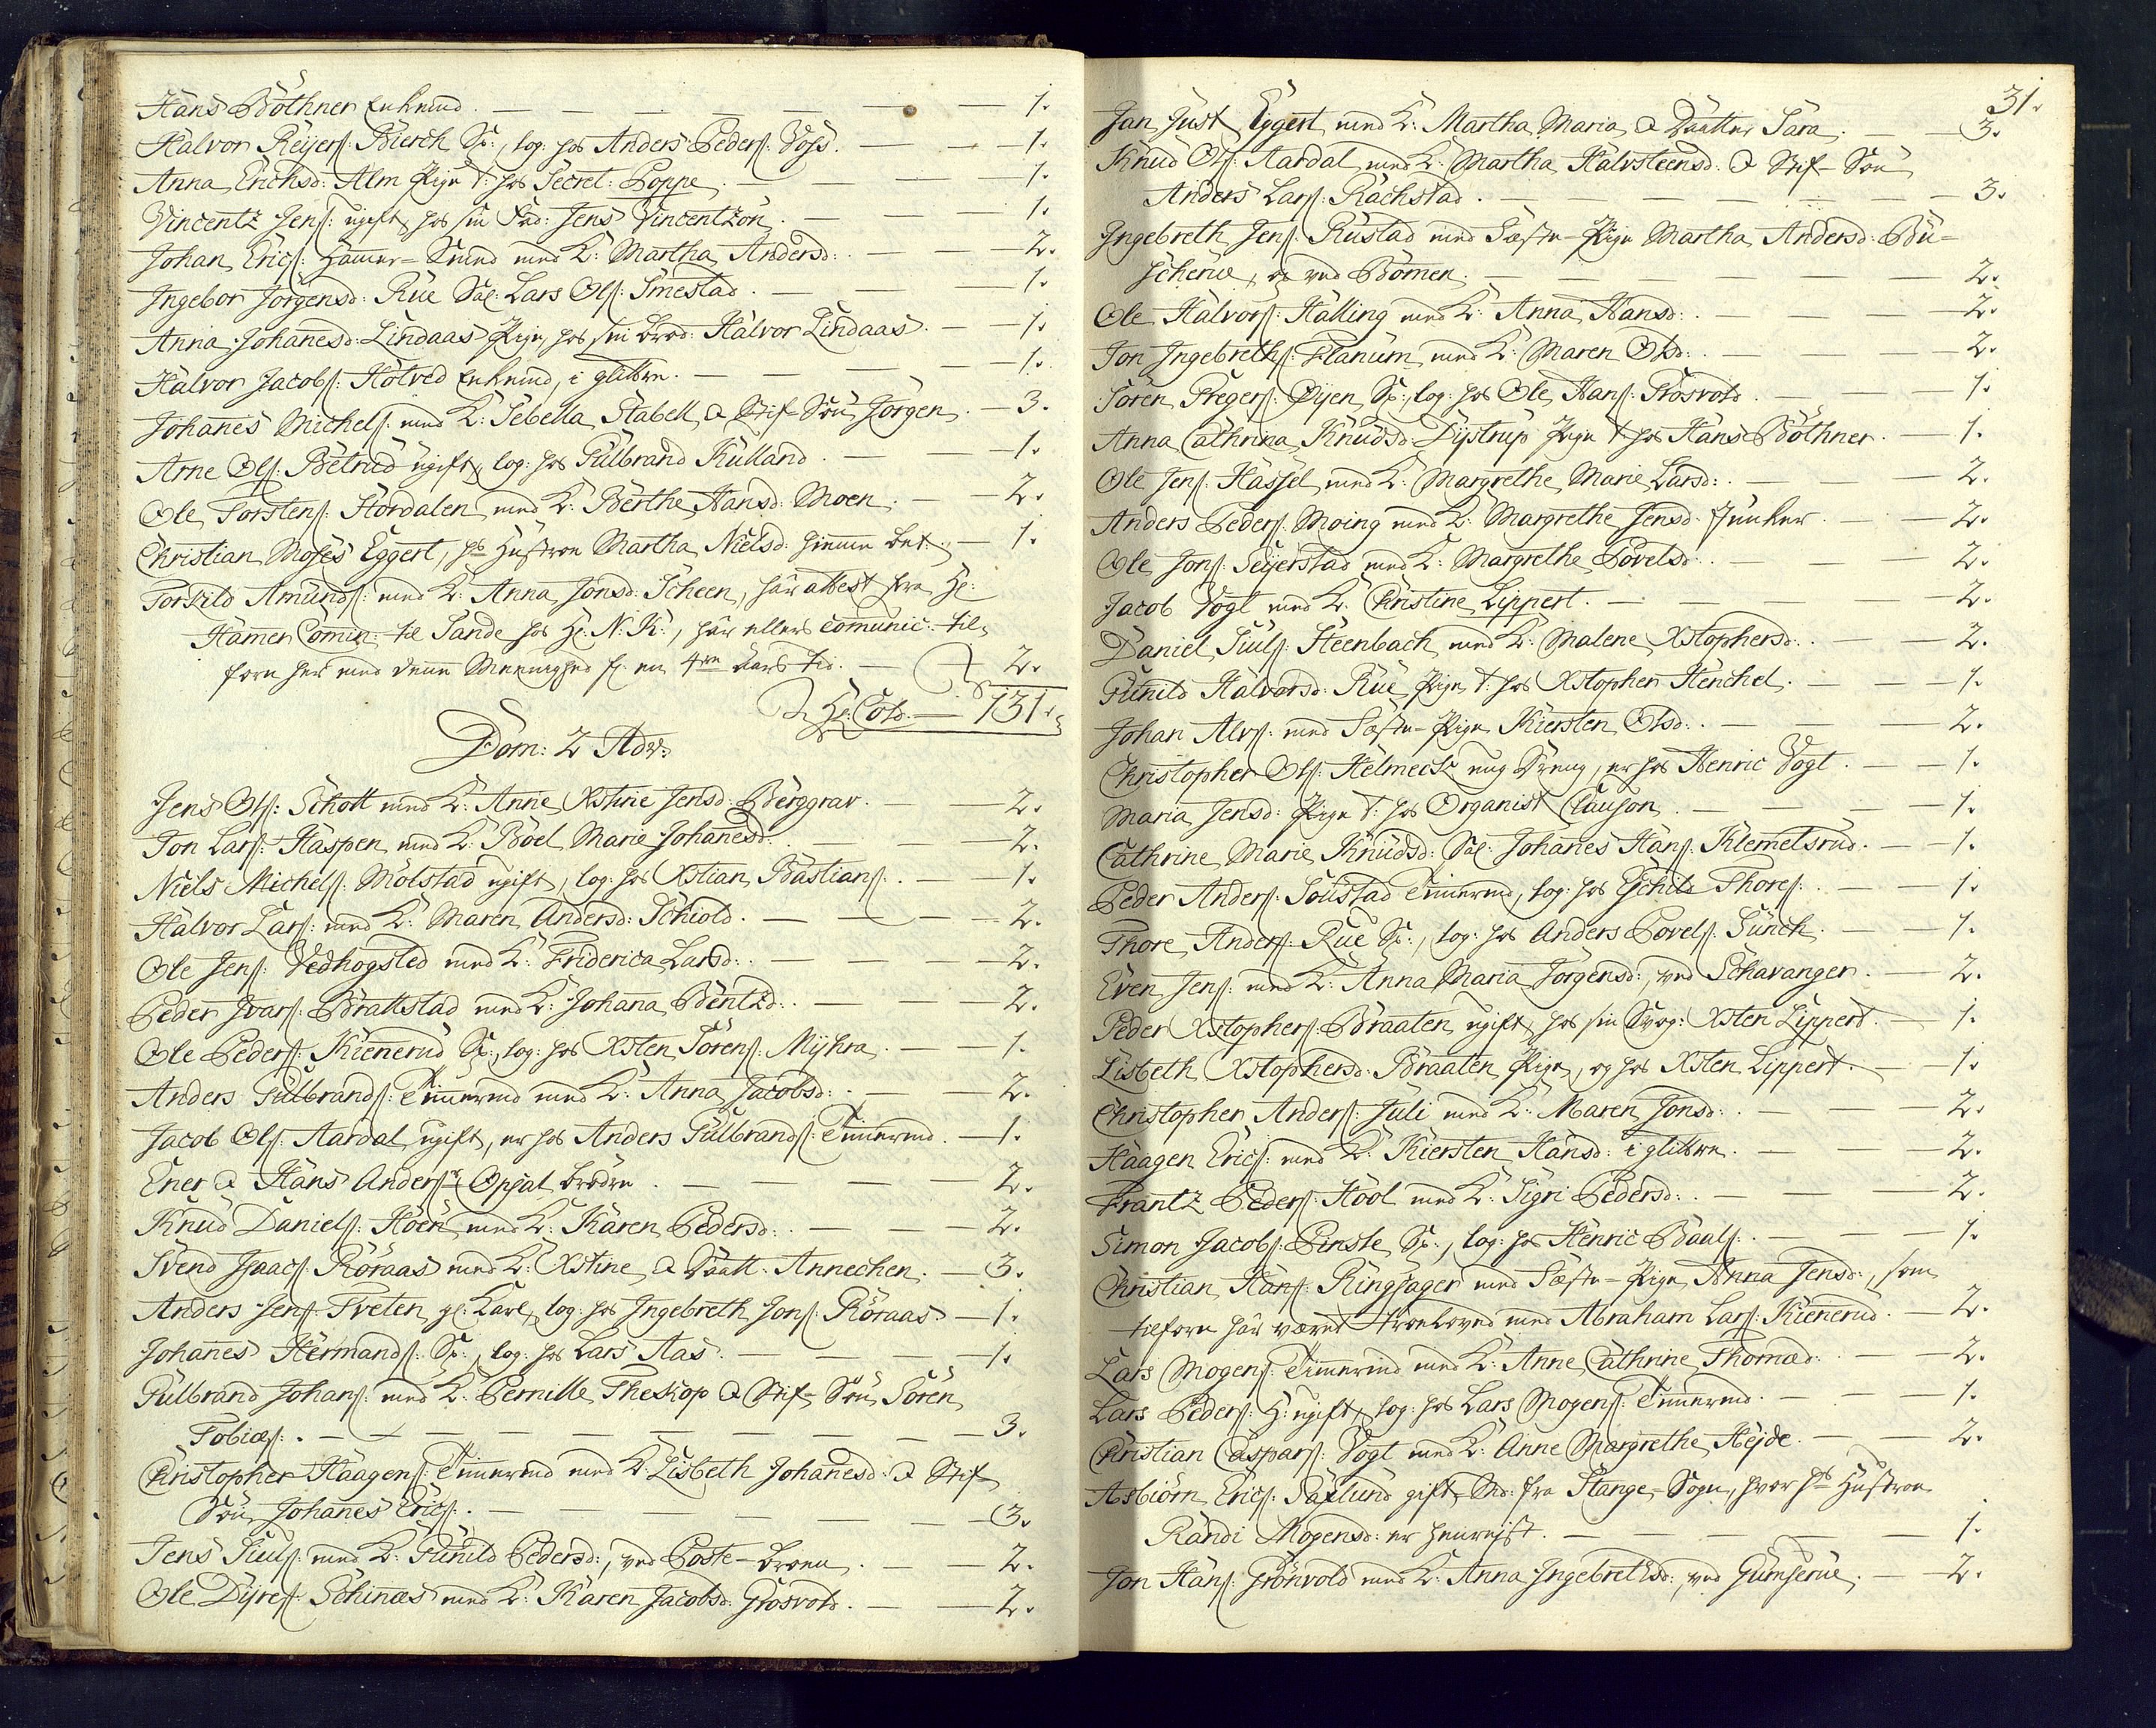 Hans Böthner Enkemd. — 1.
Halvor Reijers: Bierch Sv:, log: hos Anders Peders: Voss. — 1.
Anna Erichsd: Alm Pige t: hos Secret: Poppe. — 1.
Vincentz Jens: ugift, hos sin Fad: Jens Vincentzön. — 1.
Johan Erics: Hammer-Smed med K: Martha Andersd: — 2.
Ingebor Jörgensd: Rue Sal: Lars Ols: Smestad. — 1.
Anna Johanesd: Lindaas Pige, hos sin Brod: Halvor Lindaas. — 1.
Halvor Jacobs: Holtved Enkemd, i glittre. — 1.
Johanes Michels: med K: Sebella Stabell & Stif-Sön Jörgen. — 3.
Arne Ols: Betrud ugift, log: hos Gulbrand Kulland. — 1.
Ole Torstens: Stordalen med K: Berthe Hansd: Moen. — 2.
Christian Moses Eggert, hs Hustroe Martha Nielsd: hiemme bet: — 1.
Torkild Amunds: med K: Anna Jonsd: Scheen, har attest fra Hr:
Hammer Comin: til Sande hos Hr: N: K:, har ellers comunic: til-
forn her med denne Meenighed f: en 4re Aars tid. — 2.
Hr: Cold. — 131.
Dom: 2 Adv:
Jens Ols: Schott med K: Anne Xstine Jensd: Berggrav. — 2.
Jon Lars: Haspen med K: Boel Marie Johanesd: — 2.
Niels Michels: Molstad ugift, log: hos Xstian Bastians: — 1.
Halvor Lars: med K: Maren Andersd: Schiold. — 2.
Ole Jens: Vedhogsted med K: Friderica Larsd: — 2.
Peder Ivars: Brattstad med K: Johana Bentzd: — 2.
Ole Peders: Kienerud Sv:, log: hos Xsten Sörens: Myhra. — 1.
Anders Gulbrands: Timermd med K: Anna Jacobsd: — 2.
Jacob Ols: Aardal ugift, er hos Anders Gulbrands: Timermd. — 1.
Ener & Hans Anders: Opsal brödre. — 2.
Knud Daniels: Hoen med K: Karen Pedersd: — 2.
Svend Isaacs: Röraas med K: Xstine & Daatt: Annechen. — 3.
Anders Jens: Tveten, gl: Karl, log: hos Ingebreth Jons: Röraas — 1.
Johanes Hermands: Sv:, log: hos Lars Aas. — 1.
Gulbrand Johans: med K: Pernille Theskop & Stif-Sön Sören
Tobiæs: — 3.
Christopher Haagens: Timermd med K: Lisbeth Johanesd: & Stif
Sön Johanes Erics: — 3.
Jens Siuls: med K: Gunild Pedersd:, ved Poste-broen. — 2.
Ole Dyres: Schinæs med K: Karen Jacobsd: Grosvold. — 2.
31.
Jan Just Eggert med K: Martha Maria & Daatter Sara. — 3.
Knud Ols: Aardal med K: Martha Halvsteensd: & Stif-Sön
Anders Lars: Rachstad. — 3.
Ingebreth Jens: Rustad med Fæste-Pige Martha Andersd: Bu-
scherue, og ved Bomen. — 2.
Ole Halvors: Halling med K: Anna Hansd: — 2.
Jon Ingebreths: Flanum med K: Maren Olsd: — 2.
Sören Gregers: Öijen Sv:, log: hos Ole Hans: Grosvold. — 1.
Anna Cathrina Knudsd: Dystrup Pige t: hos Hans Böthner. — 1.
Ole Jens: Hassel med K: Margrethe Marie Larsd: — 2.
Anders Peders: Moing med K: Margrethe Jensd: Junker. — 2.
Ole Jons: Seijerstad med K: Margrethe Povelsd: — 2.
Jacob Vogt med K: Christine Lippert. — 2.
Daniel Siuls: Steenbach med K: Malene Xstophersd: — 2.
Gunild Halvorsd: Rue Pige t: hos Xstopher Henchel. — 1.
Johan Alvs: med Fæste-Pige Kiersten Olsd: — 2.
Christopher Ols: Helmeck ung Dreng, er hos Henric Vogt. — 1.
Maria Jensd: Pige t: hos Organist Clauson. — 1.
Cathrine Marie Knudsd: Sal: Johanes Hans: Klemetsrud. — 1.
Peder Anders: Soustad Timermd, log: hos Eschild Thores: — 1.
Thore Anders: Rue Sv:, log: hos Anders Povels: Sunch. — 1.
Even Jens: med K: Anna Maria Jörgensd:, ved Schavanger. — 2.
Peder Xstophers: Braaten ugift, hos sin Svog: Xsten Lippert. — 1.
Lisbeth Xstophersd: Braaten Pige, og hos Xsten Lippert. — 1.
Christopher Anders: Juli med K: Maren Jonsd: — 2.
Haagen Erics: med K: Kiersten Hansd: i glittre. — 2.
Frantz Peders: Hool med K: Sigri Pedersd: — 2.
Simon Jacobs: Penste Sv:, log: hos Henric Baals: — 1.
Christian Hans: Ringsager med Fæste-Pige Anna Jensd:, som
tilforn har været troeloved med Abraham Lars: Kienerud. — 2.
Lars Mogens: Timermd med K: Anne Cathrine Thomæd: — 2.
Lars Peders: H: ugift, log: hos Lars Mogens: Timermd. — 1.
Christian Caspars: Vogt med K: Anne Margrethe Hejde. — 2.
Asbiörn Erics: Saxlund gift Md: fra Stange-Sogn, hvor hs Hustroe
Randi Mogensd: er henrejst. — 1.
Jon Hans: Grönvold med K: Anna Ingebrethsd: ved Gumserue. — 2.